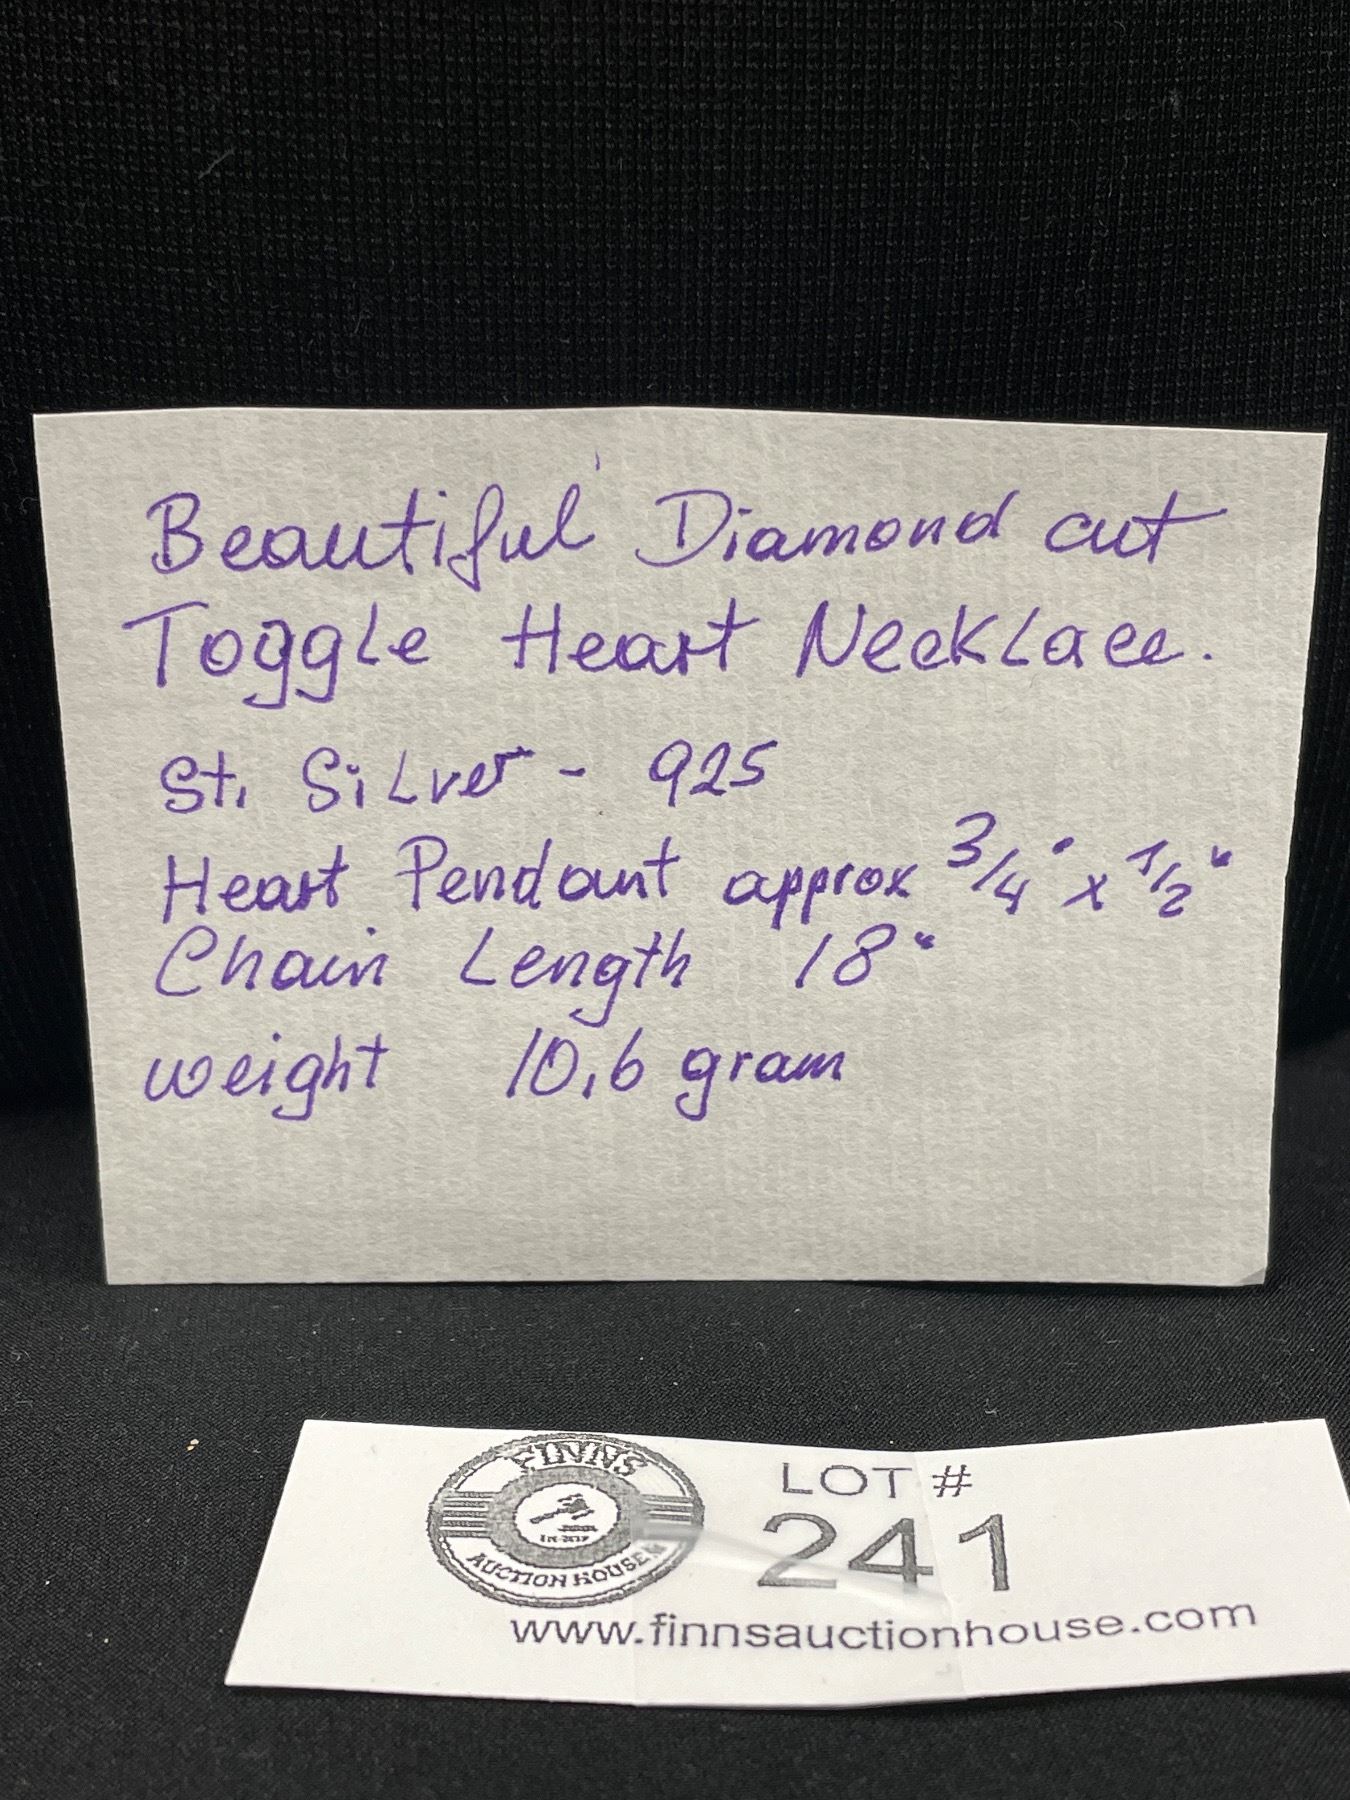 Beautiful Diamond cut
Toggle Heart Necklace.
St. Silver - 925
Heart Pendant approx 3/4" x 1/2"
Chain Length 18"
weight 10,6 gram
FINNS
AUCTION HOUSE
LOT #
241
www.finnsauctionhouse.com